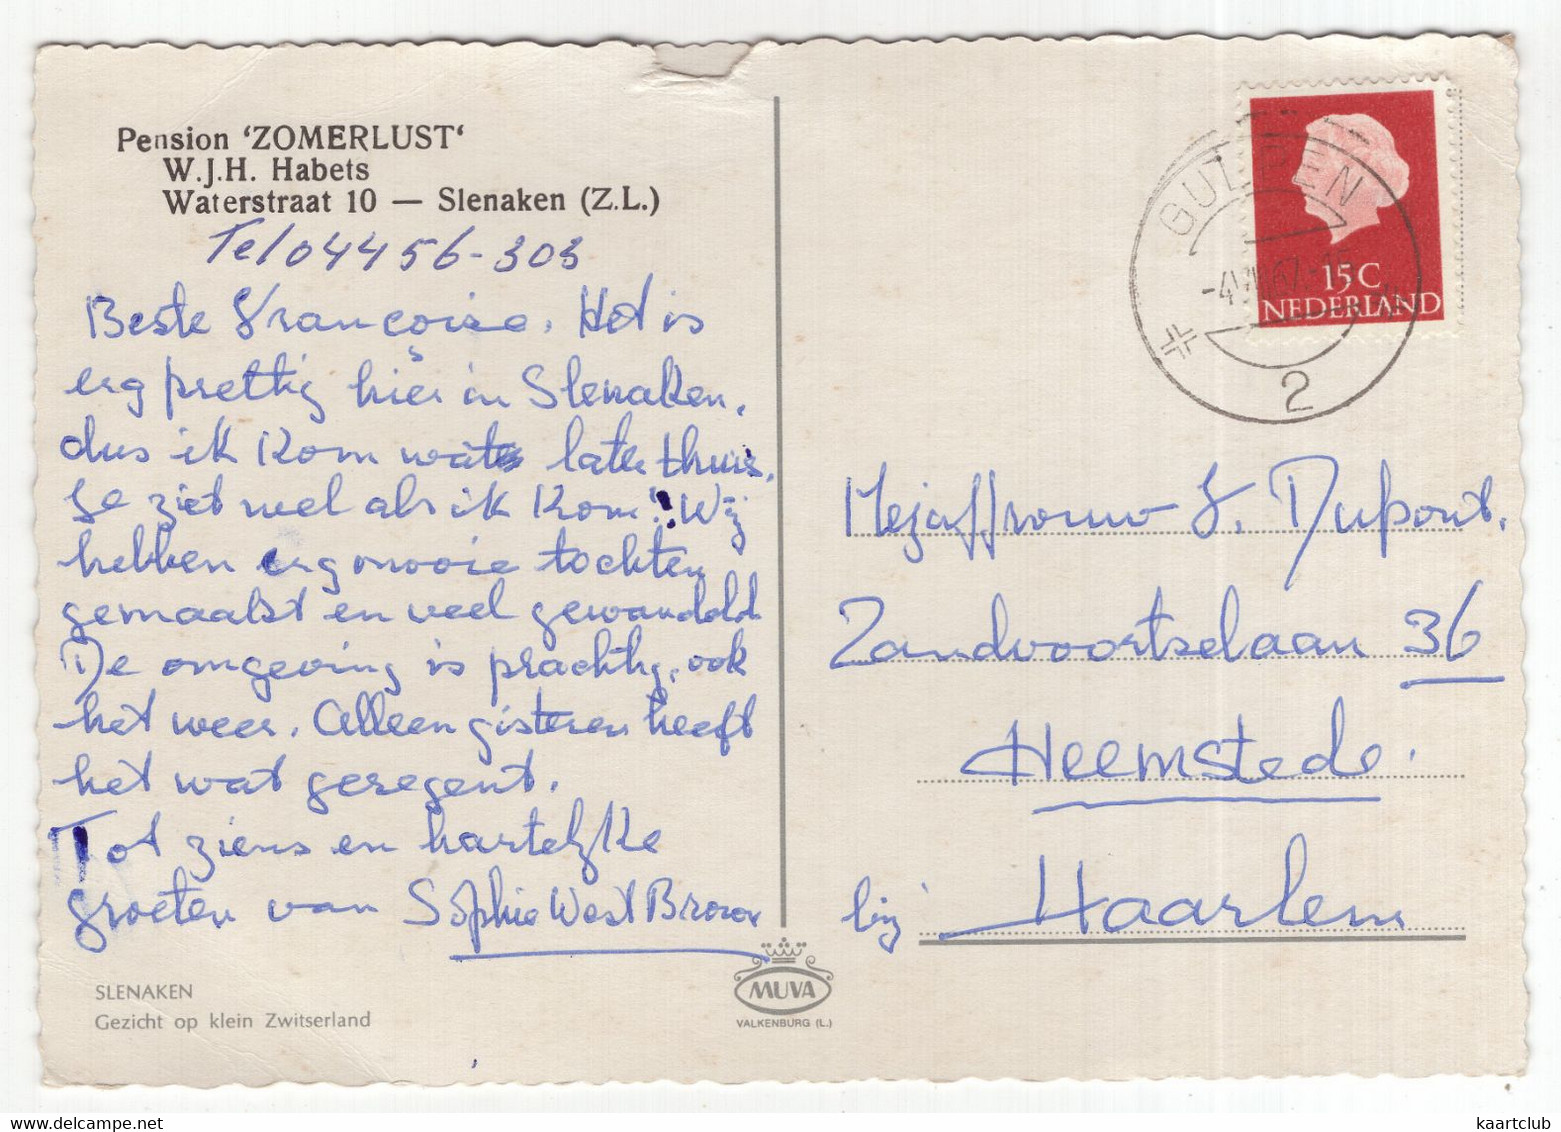 Pension 'ZOMERLUST'
W.J.H. Habets
Waterstraat 10 — Slenaken (Z.L.)
Tel 04456-303
Beste Françoise. Het is
erg prettig hier in Slenaken,
dus ik kom wat later thuis.
Je ziet wel als ik kom! Wij
hebben erg mooie tochten
gemaakt en veel gewandeld
De omgeving is prachtig, ook
het weer. Alleen gisteren heeft
het wat geregent.
Tot ziens en hartelijke
groeten van Sophie West Brown
SLENAKEN
Gezicht op klein Zwitserland
MUVA
VALKENBURG (L.)
GULPEN
2
15C
NEDERLAND
Mejuffrouw F. Dupont.
Zandvoortselaan 36
Heemstede.
bij Haarlem
www.delcampe.net
kaartclub